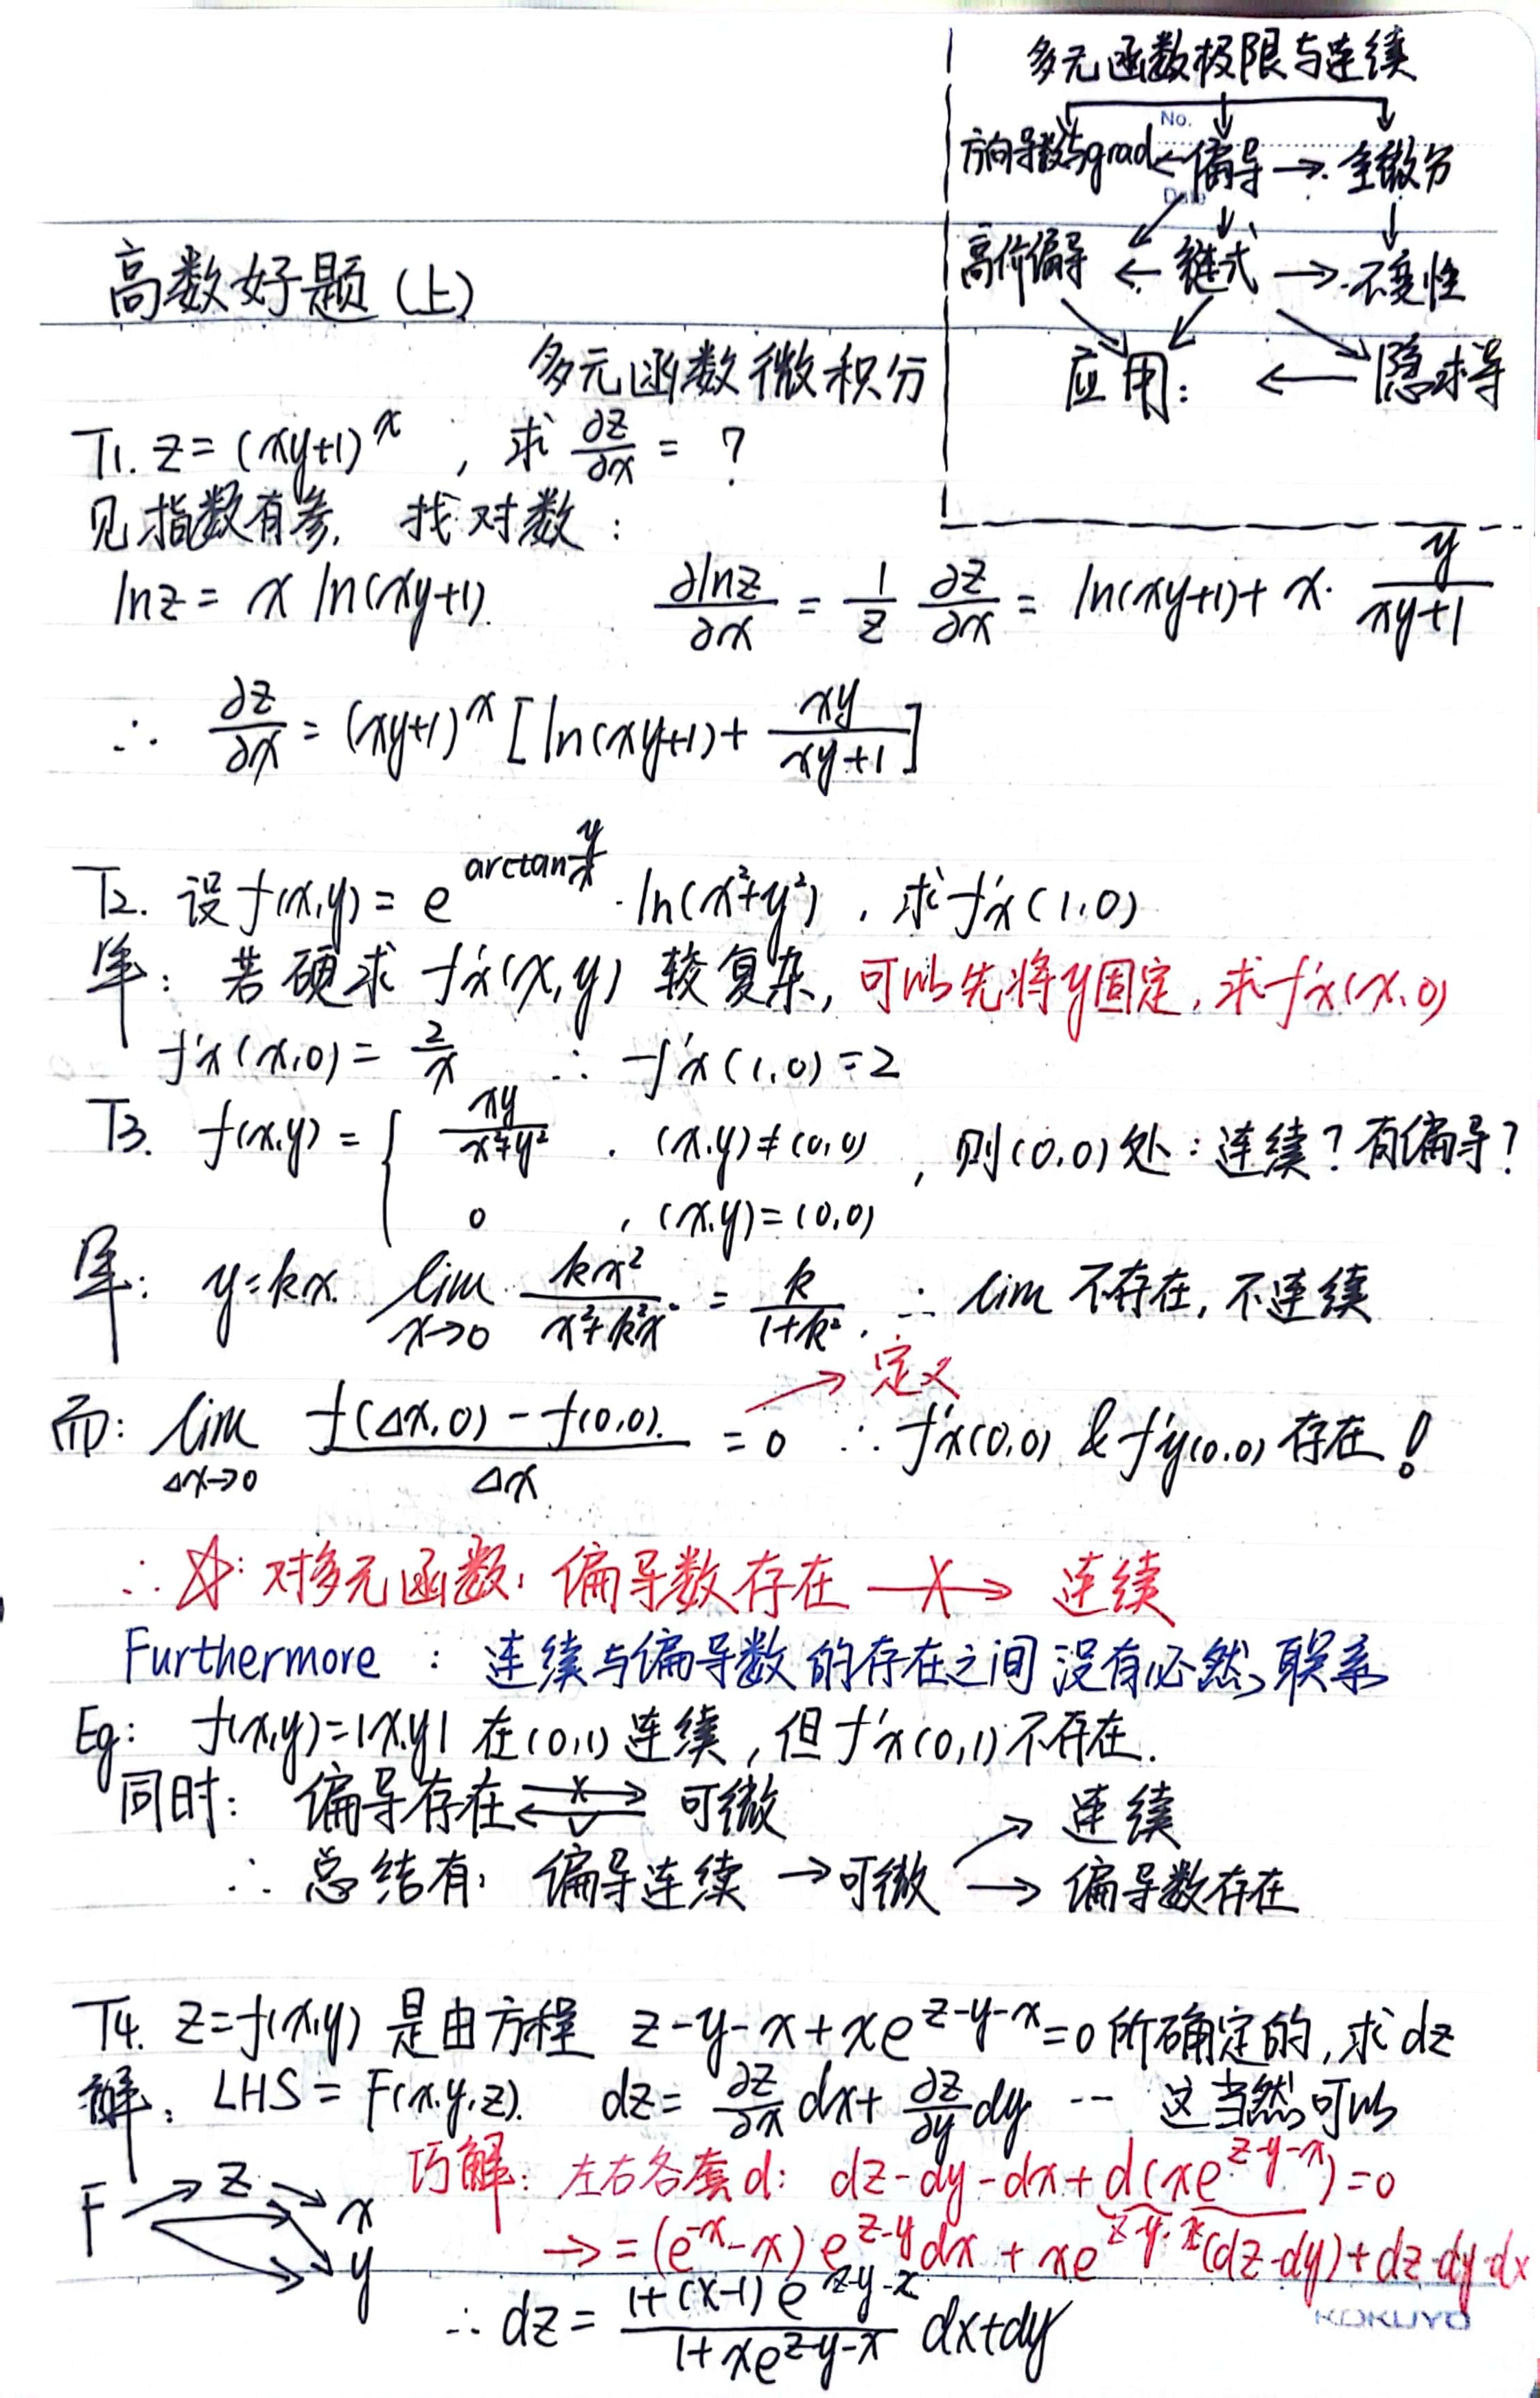 多元函数极限与连续
No.
方向导数与grad ← 偏导 → 全微分
Date
高阶偏导 ← 链式 → 不变性
应用: ← 隐求导
高数好题(上)
多元函数微积分
T1. z=(xy+1)^x , 求 ∂z/∂x = ?
见指数有参, 找对数:
lnz = x ln(xy+1). ∂lnz/∂x = 1/z ∂z/∂x = ln(xy+1)+ x· y/(xy+1)
∴ ∂z/∂x = (xy+1)^x [ln(xy+1)+ xy/(xy+1)]
T2. 设f(x,y)= e^(arctan y/x) · ln(x²+y²), 求f'x(1,0)
解: 若硬求 f'x(x,y) 较复杂, 可以先将y固定, 求f'x(x,0)
f'x(x,0)= 2/x ∴ f'x(1,0)=2
T3. f(x,y)= { xy/(x²+y²) , (x,y)≠(0,0) , 则(0,0)处: 连续? 有偏导?
0 , (x,y)=(0,0)
解: y=kx. lim x→0 kx²/(x²+k²x²) = k/(1+k²). ∴ lim 不存在, 不连续
而: lim Δx→0 (f(Δx,0)-f(0,0))/Δx = 0 → 定义 ∴ f'x(0,0) & f'y(0,0) 存在!
∴ ☆: 对多元函数: 偏导数存在 —X→ 连续
Furthermore : 连续与偏导数的存在之间没有必然联系
Eg: f(x,y)=|xy| 在(0,1)连续, 但f'x(0,1)不存在.
同时: 偏导存在 X→ ←√ 可微
∴ 总结有: 偏导连续 → 可微 → 连续
→ 偏导数存在
T4. z=f(x,y) 是由方程 z-y-x+xe^(z-y-x)=0所确定的, 求dz
解: LHS = F(x,y,z). dz= ∂z/∂x dx+ ∂z/∂y dy ··· 这当然可以
巧解: 左右各套d: dz-dy-dx+d(xe^(z-y-x))=0
F → z → x
y
→ =(e^(-x)-x) e^(z-y) dx + xe^(z-y-x)(dz-dy)+dz-dy-dx
∴ dz = (1+(x-1)e^(z-y-x))/(1+xe^(z-y-x)) dx+dy
KOKUYO